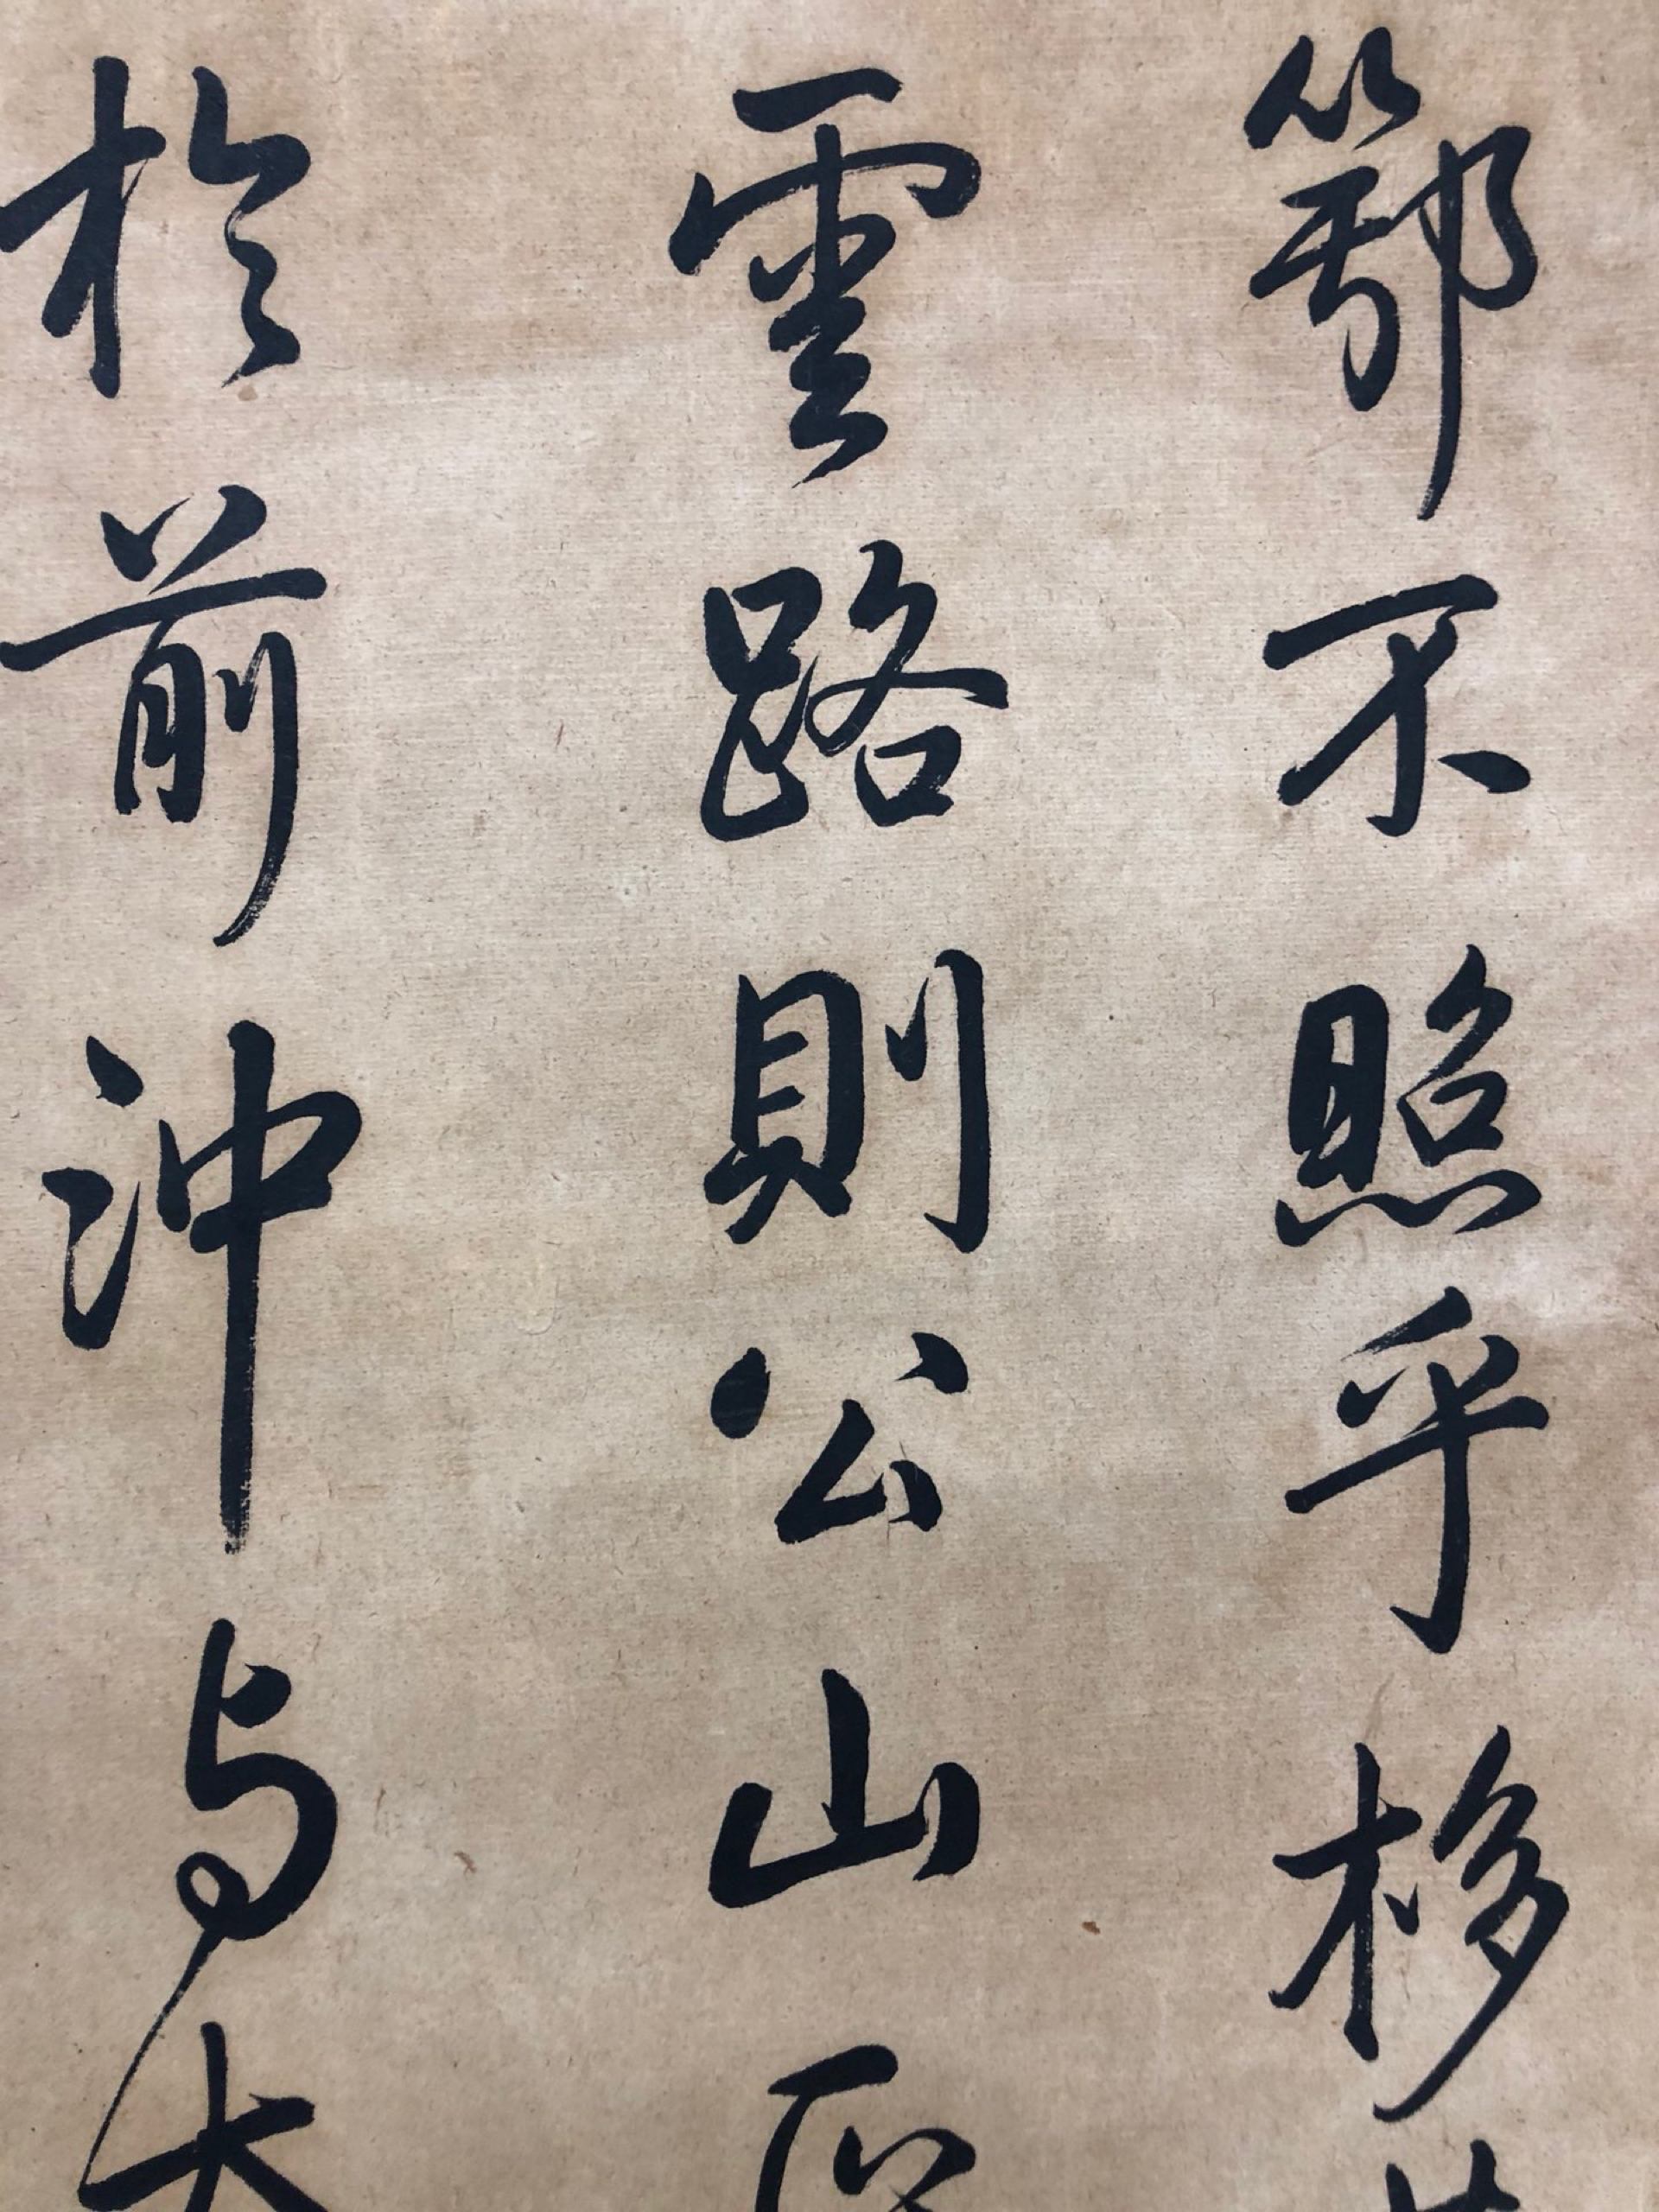 鄂不照乎移
雲路則公山
於前沖与大